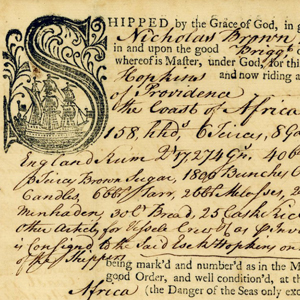 SHIPPED by the Grace of God, in g
Nicholas Brown
in and upon the good Brigg
whereof is Master, under God, for this
Hopkins and now riding a
of Providence
the Coast of Africa
158 hhds, 6 Tierces, 8
England Rum Qy 17,274 Gn. 40 bb
Brown Sugar, 1800 Bunches O
Candles, 6 bbs Tarr, 2 bbs Molosses, 2
Menhaden, 30 C Bread, 25 Casks Rice
other for Vessels Crew &
is Consign'd to the Said Esek Hopkins or
of the Shippers
being mark'd and number'd as in the M
good Order, and well condition'd, at th
Africa (the Danger of the Seas only exc